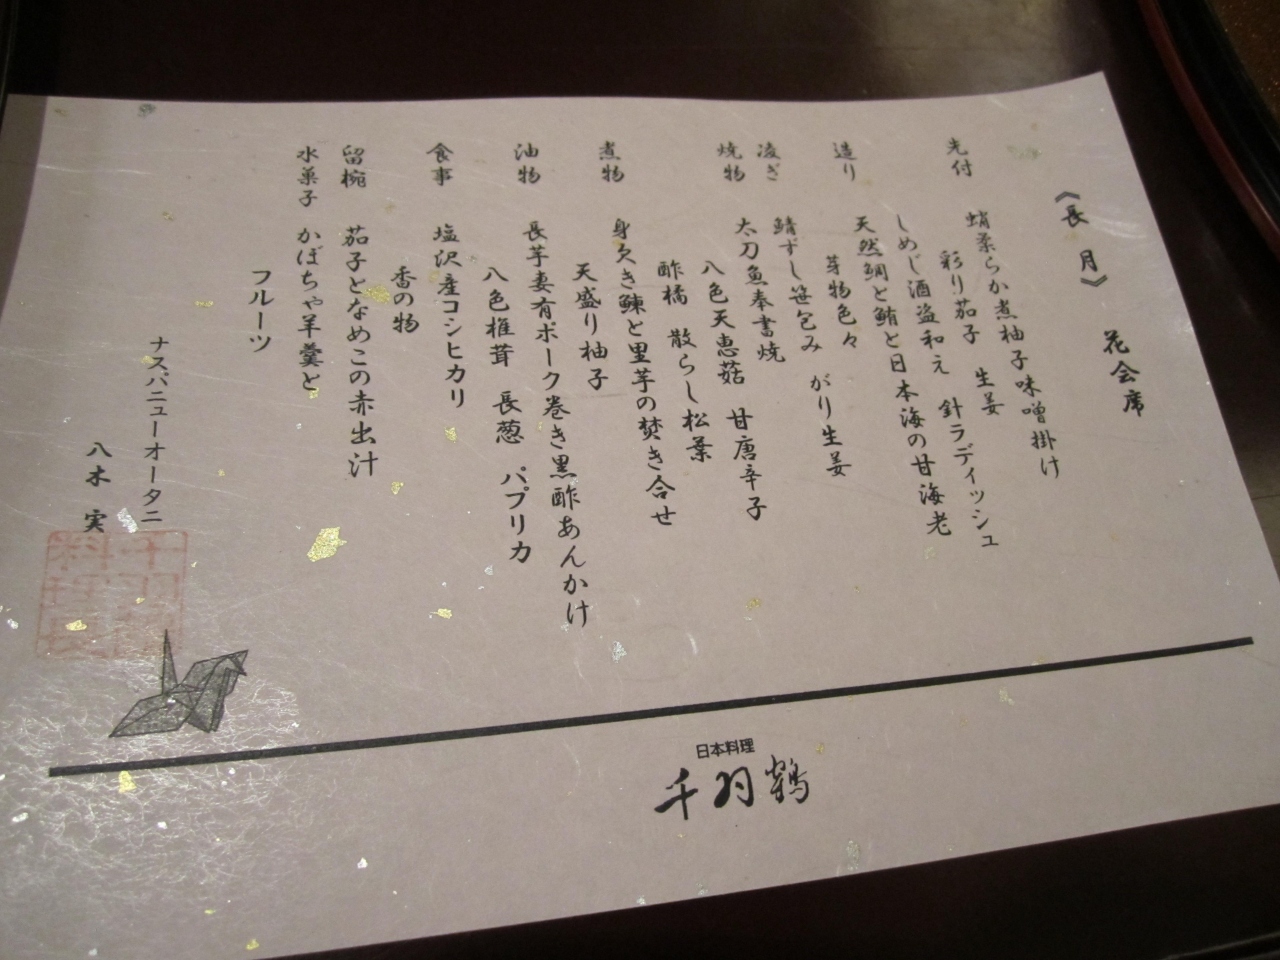 花会席
《長月》
先付　蛸柔らか煮柚子味噌掛け
彩り茄子　生姜　針ラディッシュ
しめじ酒盗和え
造り　天然鯛と鮪と日本海の甘海老
芽物色々
凌ぎ　鯖ずし笹包み　がり生姜
焼物　太刀魚奉書焼
八色天恵菇　甘唐辛子
酢橘　散らし松葉
煮物　身欠き鰊と里芋の焚き合せ
天盛り柚子
油物　長芋妻有ポーク巻き黒酢あんかけ
八色椎茸　長葱　パプリカ
食事　塩沢産コシヒカリ
香の物
留椀　茄子となめこの赤出汁
水菓子　かぼちゃ羊羹と
フルーツ
ナスパニューオータニ
八木　実
日本料理
千羽鶴